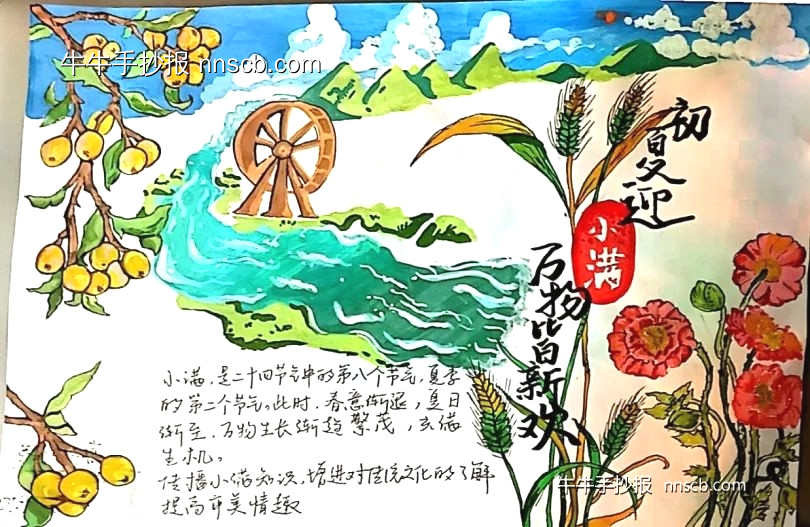 牛牛手抄报 nnscb.com
初夏迎
小满
万物皆新欢
小满,是二十四节气中的第八个节气,夏季
的第二个节气。此时,春意渐退,夏日
渐至,万物生长渐趋繁茂,充满
生机。
传播小满知识,增进对传统文化的了解
提高审美情趣
牛牛手抄报 nnscb.com